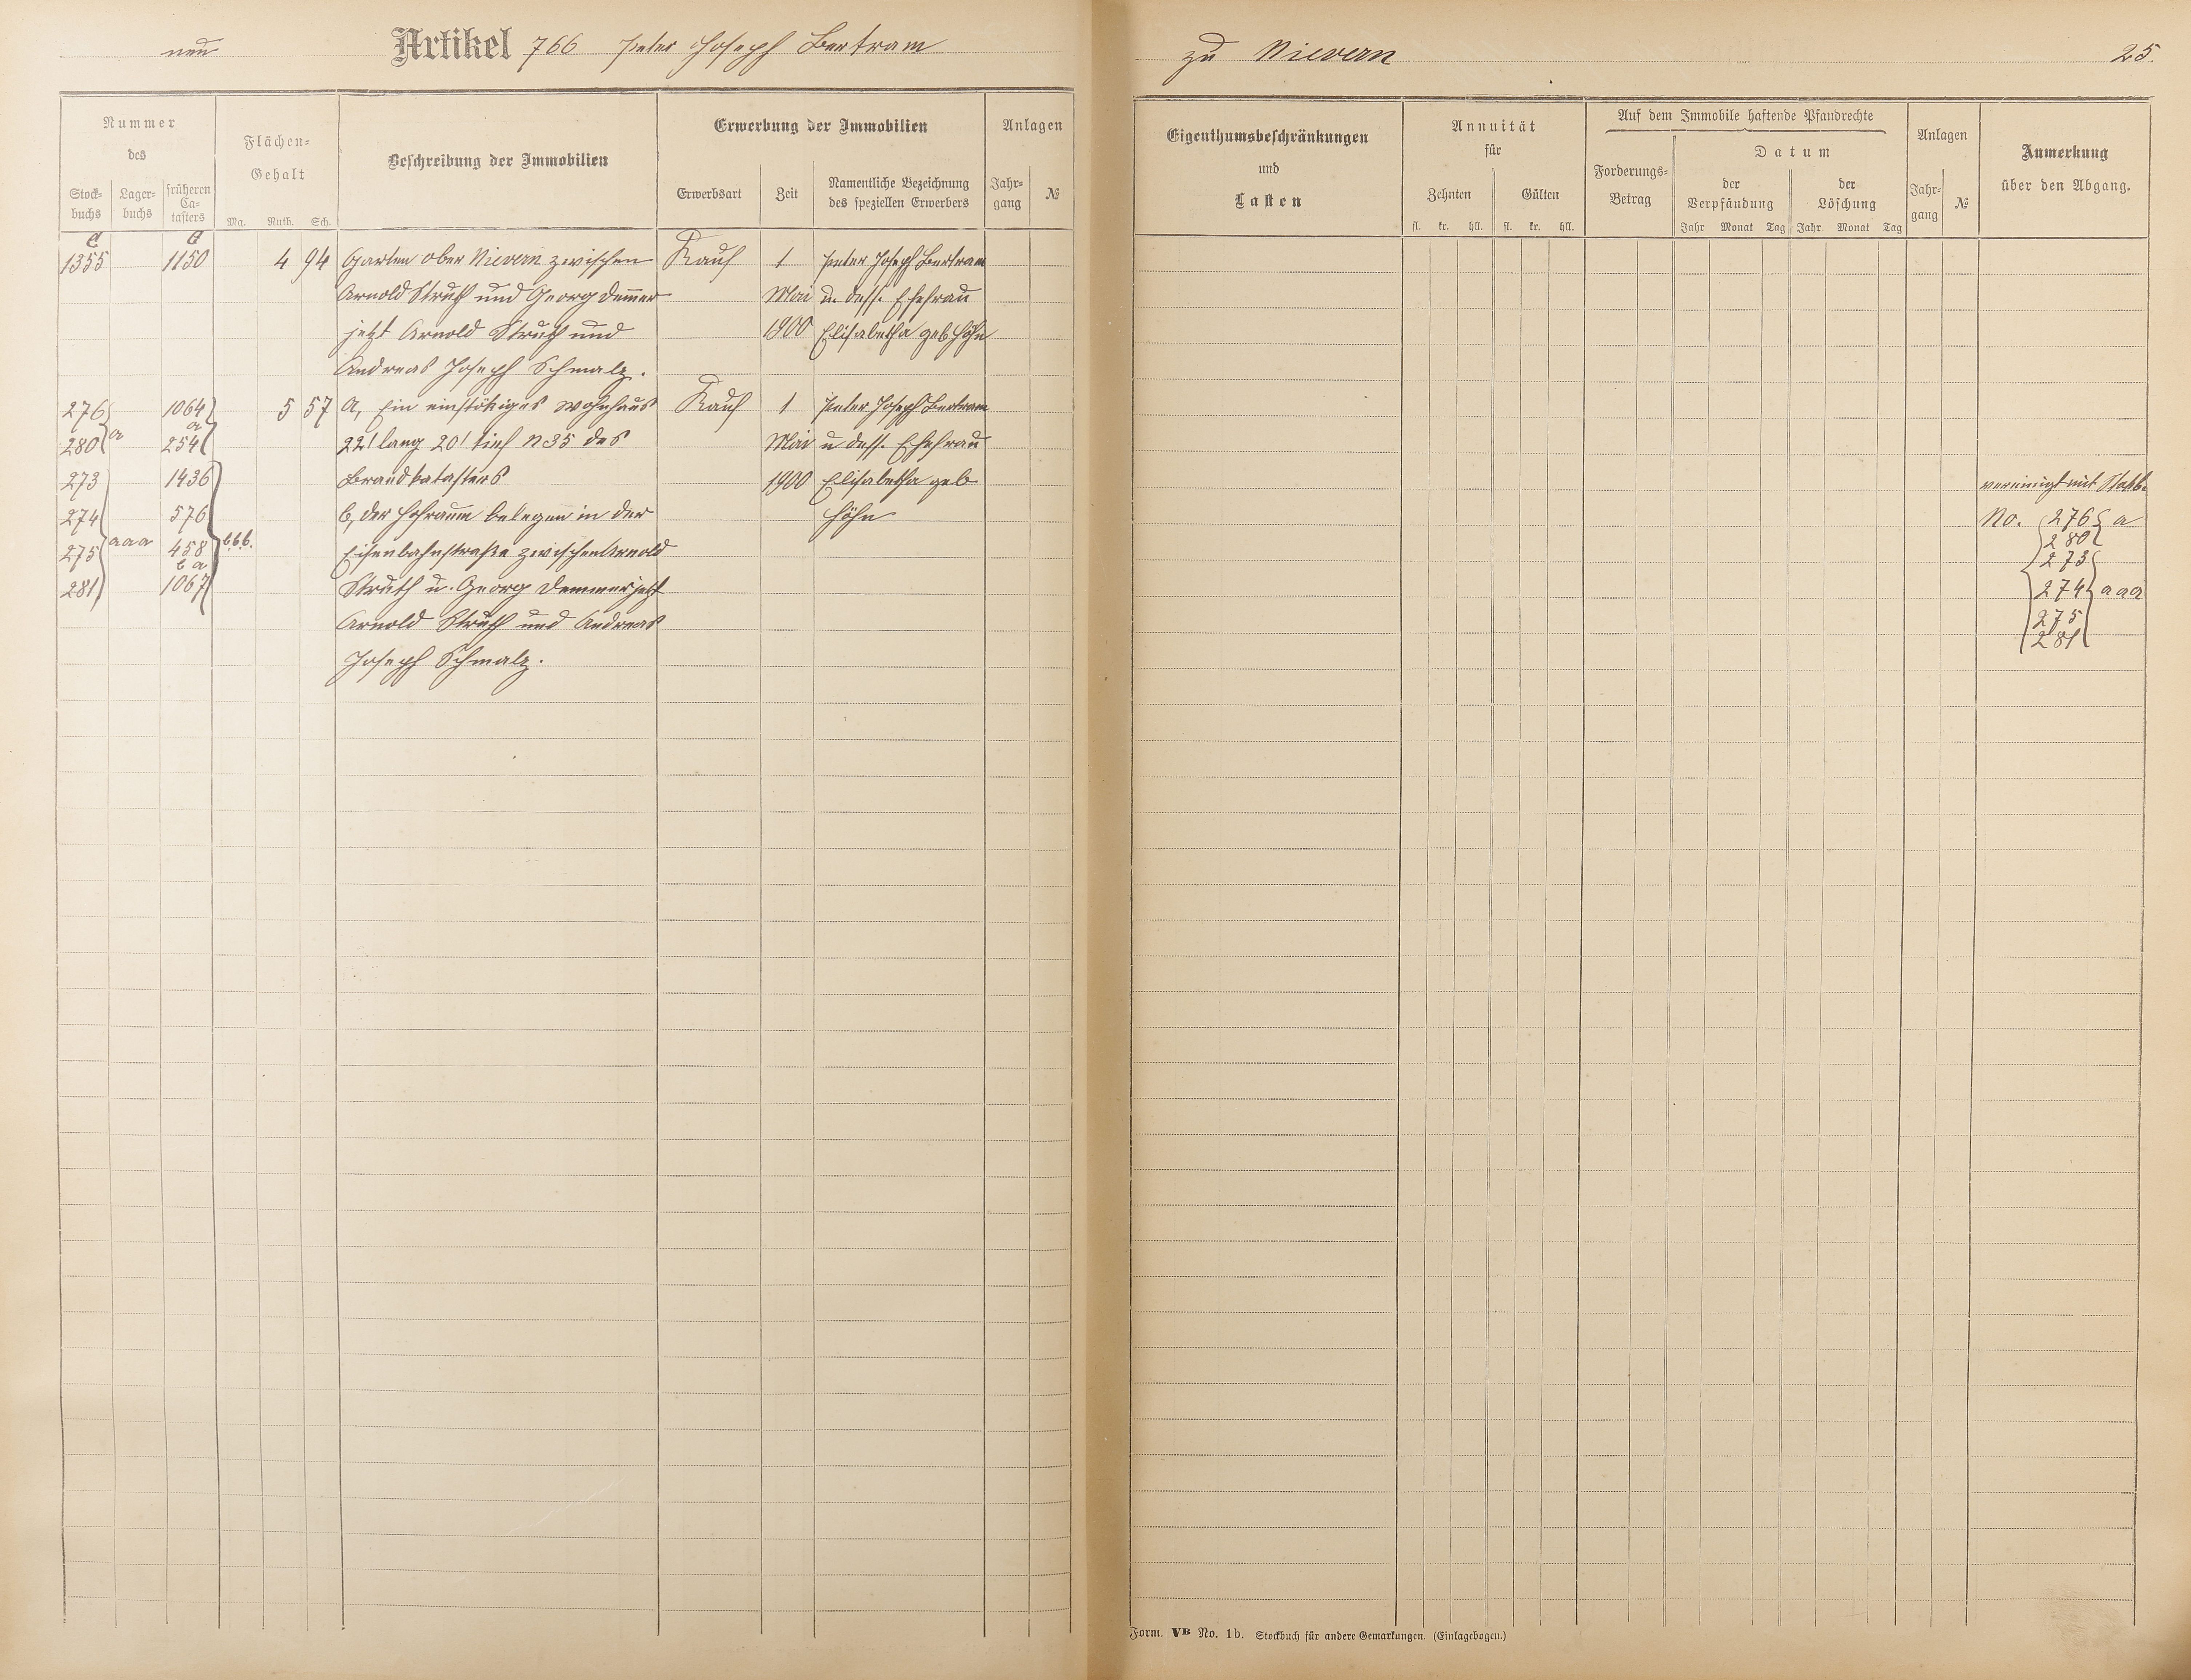 neu Artikel 766 Peter Joseph Bertram
zu Nievern 25.
Nummer
des
Stock-
buchs
Lager-
buchs
früheren
Ca-
tasters
Flächen-
Gehalt
Mg. Ruth. Sch.
Beschreibung der Immobilien
Erwerbung der Immobilien
Erwerbsart
Zeit
Namentliche Bezeichnung
des speziellen Erwerbers
Anlagen
Jahr-
gang
№
1355 1150 4 94 Garten ober Nievern zwischen Kauf 1 Peter Joseph Bertram
Arnold Struth und Georg Demmer Mai u. dess. Ehefrau
jetzt Arnold Struth und 1900 Elisabetha geb Höhn
Andreas Joseph Schmalz.
276 1064 5 57 a, Ein einstökiges Wohnhaus Kauf 1 Peter Joseph Bertram
a a
280 254 22' lang 20' tief N 35 des Mai u dess. Ehefrau
273 1436 Brandkatasters 1900 Elisabetha geb
274 576 b, der Hofraum belegen in der Höhn
275 aaa 458 b.b.b. Eisenbahnstraße zwischen Arnold
b a
281 1067 Struth u. Georg Demmer jetzt
Arnold Struth und Andreas
Joseph Schmalz.
Eigenthumsbeschränkungen
und
Lasten
Annuität
für
Zehnten
fl. kr. hll.
Gülten
fl. kr. hll.
Auf dem Immobile haftende Pfandrechte
Forderungs-
Betrag
Datum
der
Verpfändung
Jahr Monat Tag
der
Löschung
Jahr Monat Tag
Anlagen
Jahr-
gang
№
Anmerkung
über den Abgang.
vereinigt mit Stckb.
No. 276 a
280
273
274 aaa
275
281
Form. VB No. 1b. Stockbuch für andere Gemarkungen. (Einlagebogen.)